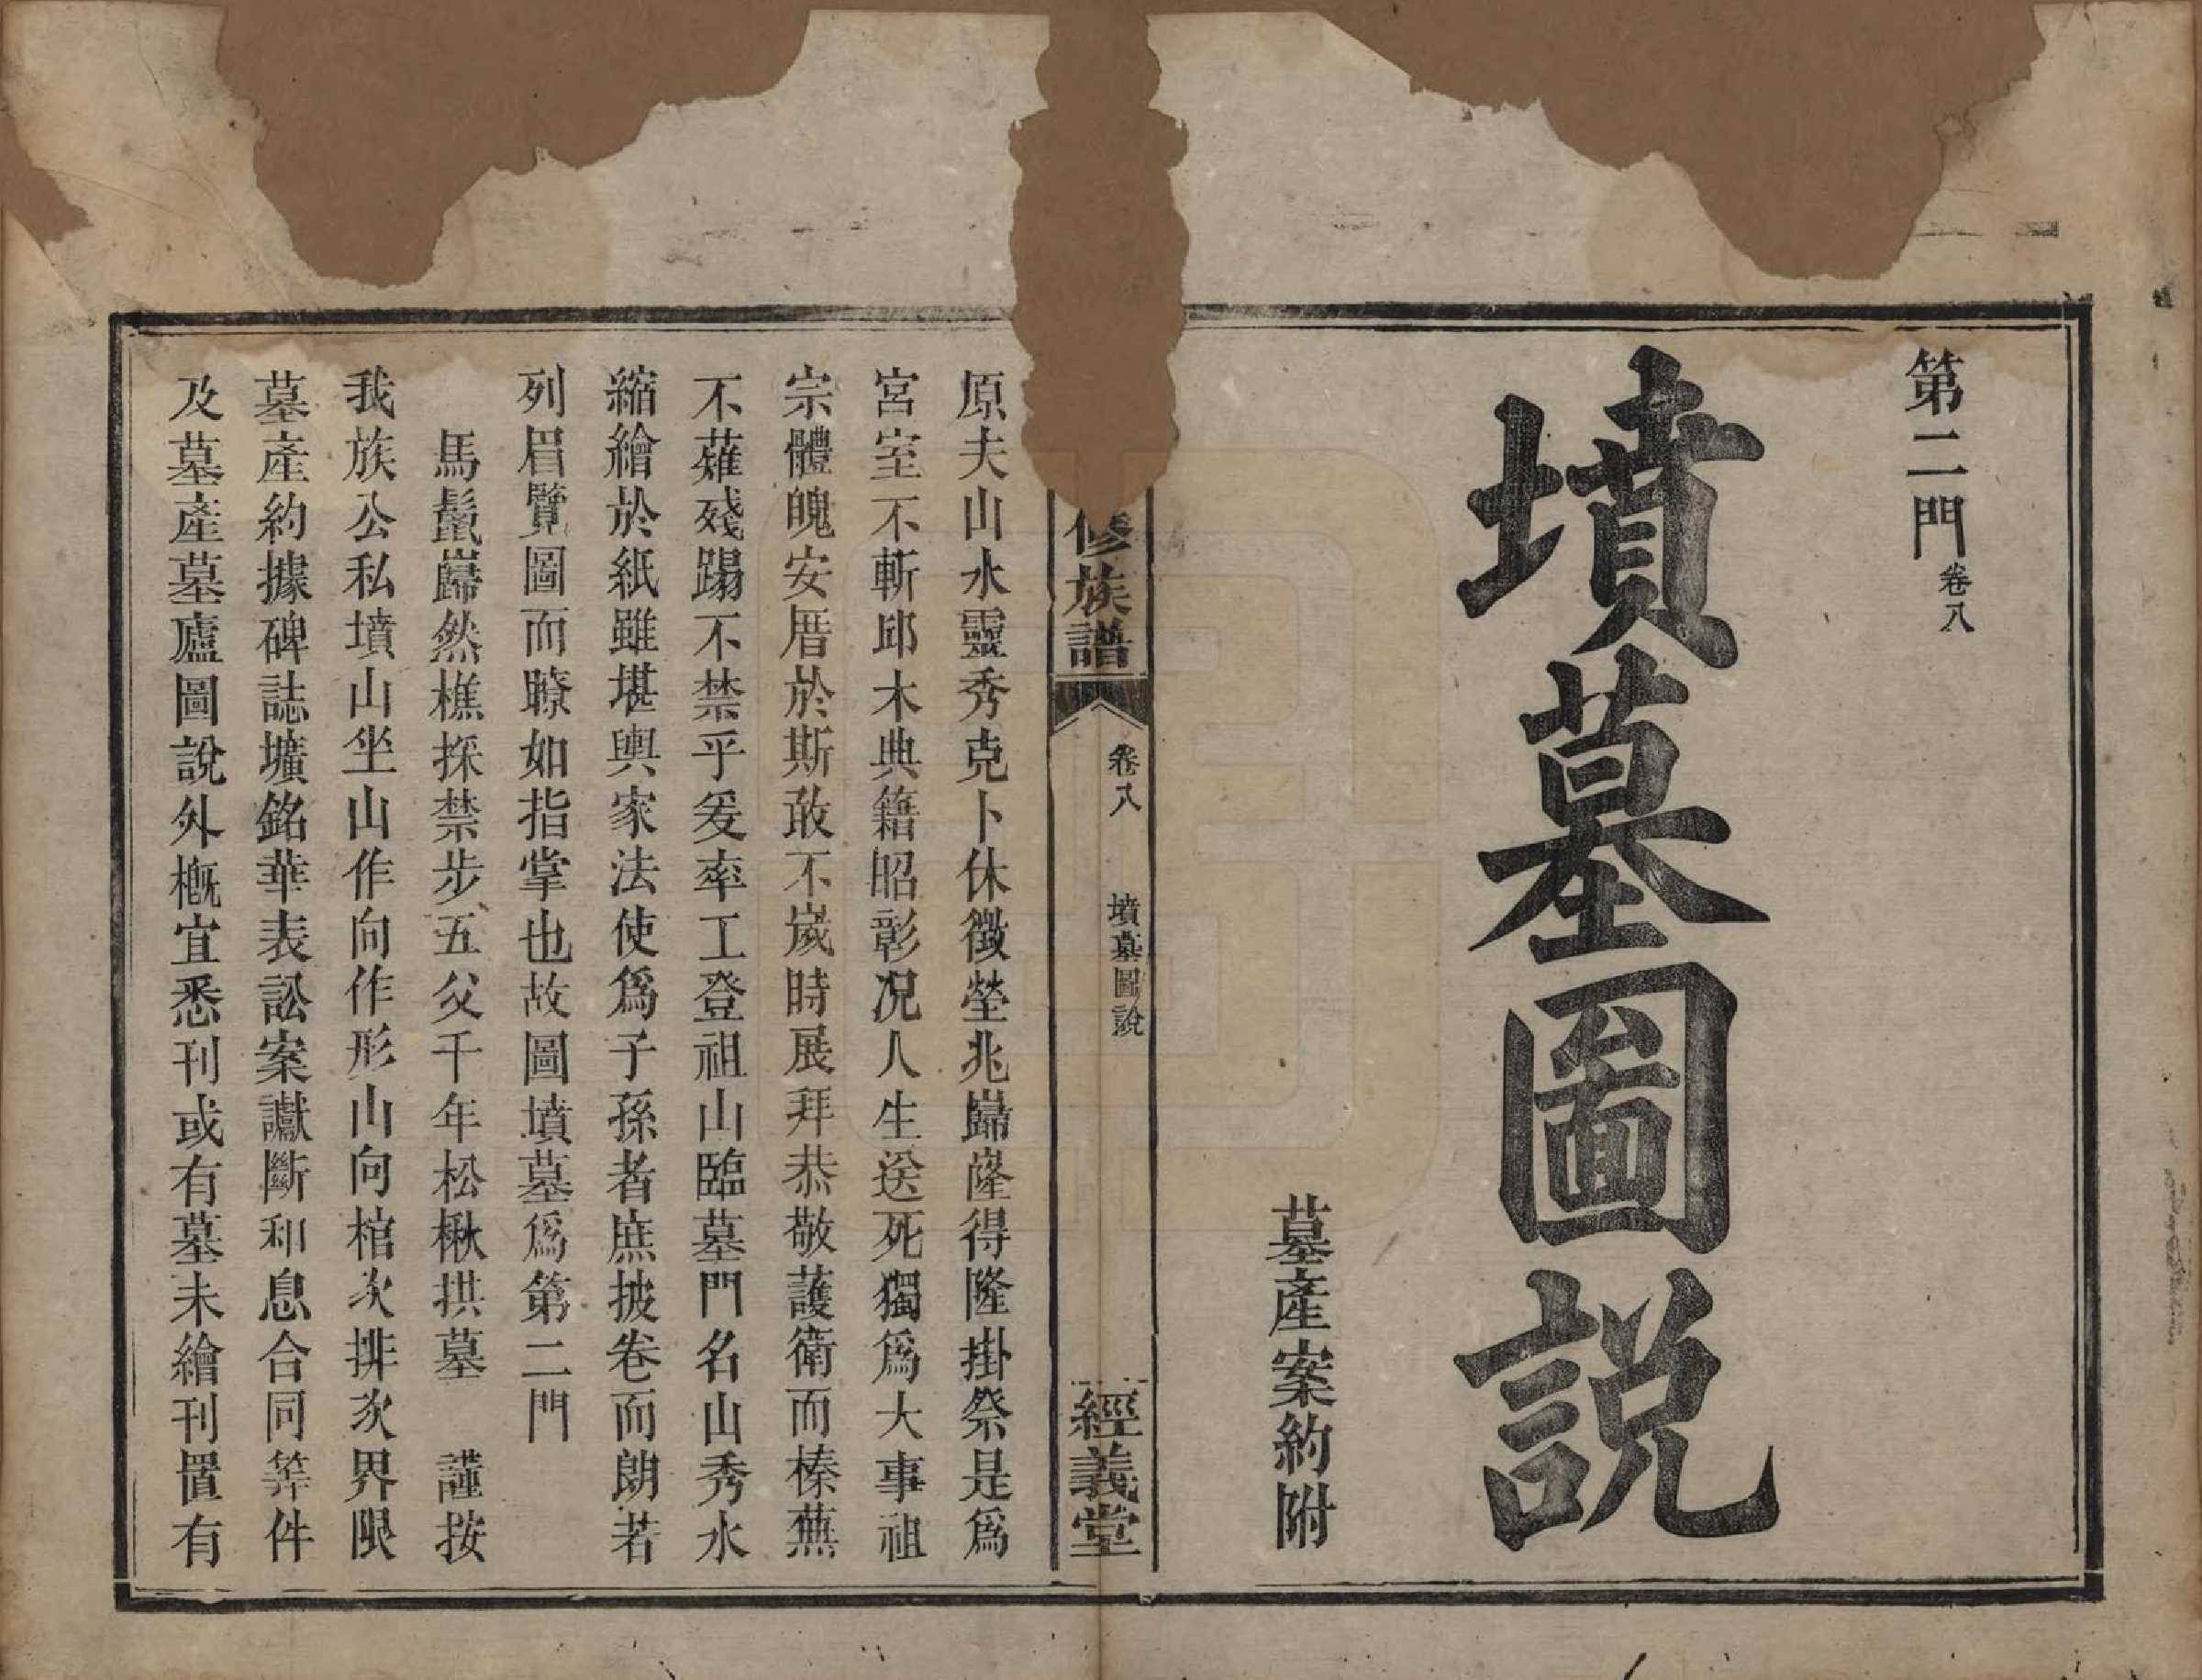 第二門卷八
墳墓圖說
墓產案約附
修族譜
卷八
墳墓圖說
經義堂
原夫山水靈秀克卜休徵塋兆巋窿得隆掛祭是爲
宮室不斬邱木典籍昭彰况人生送死獨爲大事祖
宗體魄安厝於斯敢不歲時展拜恭敬護衛而榛蕪
不薙殘蹋不禁乎爰率工登祖山臨墓門名山秀水
縮繪於紙雖堪輿家法使爲子孫者庶披卷而朗若
列眉覽圖而瞭如指掌也故圖墳墓爲第二門
馬鬣巋然樵採禁步五父千年松楸拱墓　謹按
我族公私墳山坐山作向作形山向棺次排次界限
墓產約據碑誌壙銘華表訟案讞斷和息合同等件
及墓產墓廬圖說外概宜悉刊或有墓未繪刊置有